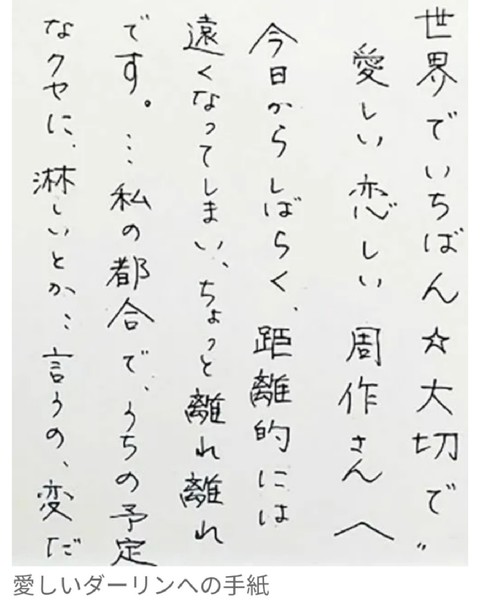 世界でいちばん☆大切で〃
愛しい恋しい周作さんへ
今日からしばらく、距離的には
遠くなってしまい、ちょっと離れ離れ
です。…私の都合で、うちの予定
なクセに、淋しいとか…言うの、変だ
愛しいダーリンへの手紙